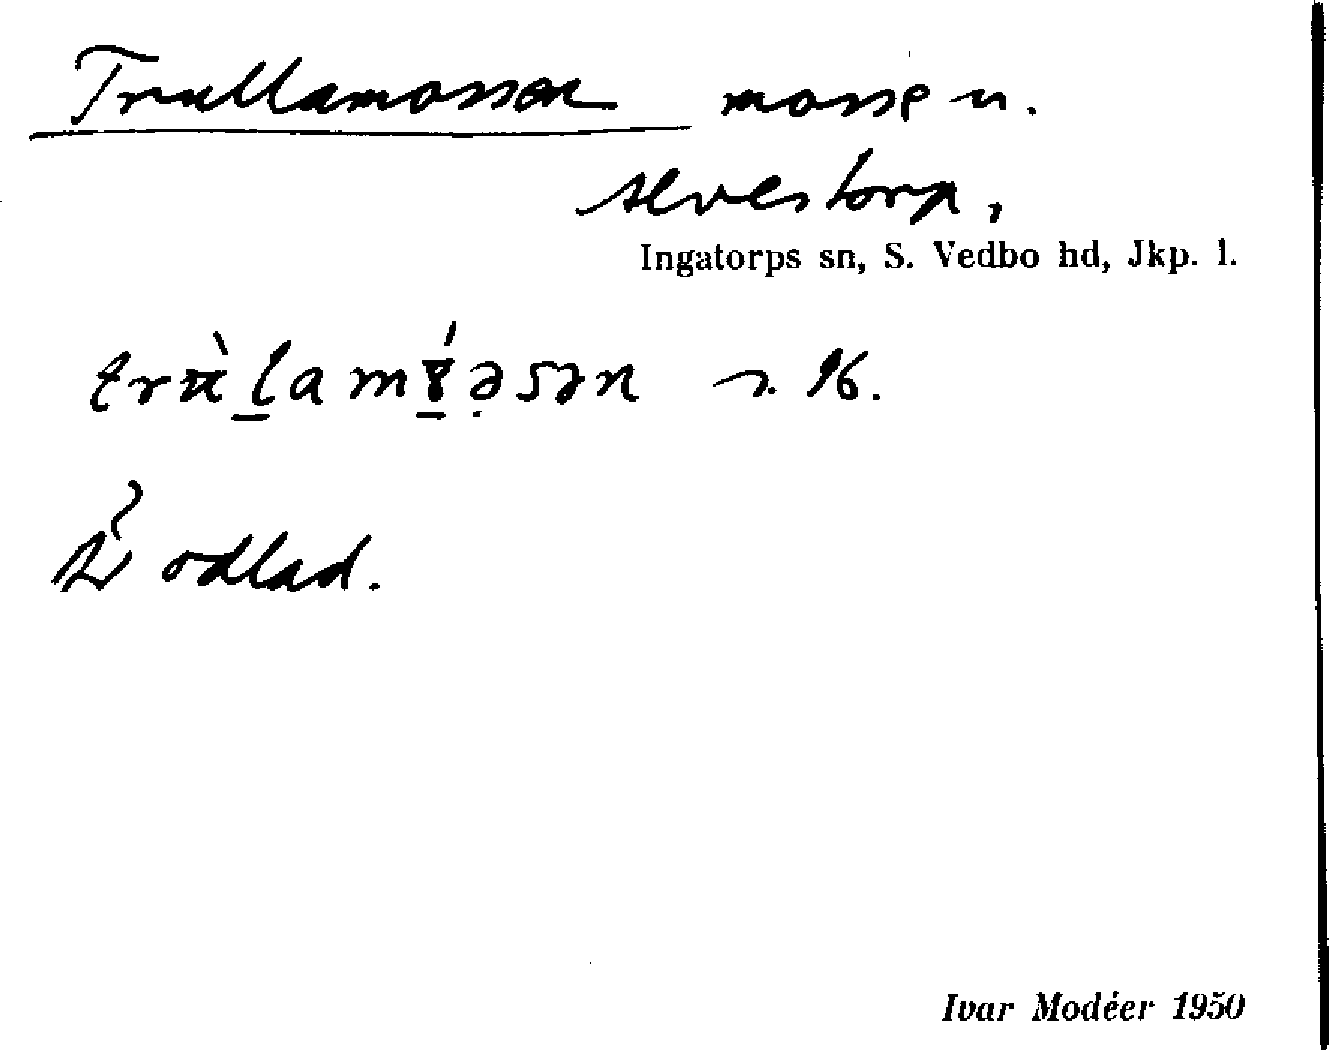 Trullamossen mosse n.
Alvestorp,
Ingatorps sn, S. Vedbo hd, Jkp. l.
s. 16.
Är odlad.
Ivar Modéer 1950